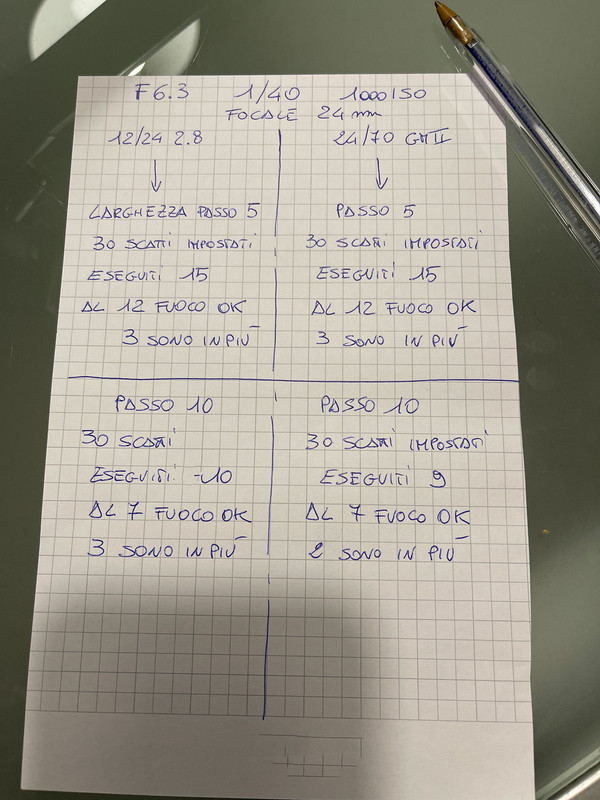 F6.3 1/40 1000 ISO
FOCALE 24 mm
12/24 2.8
LARGHEZZA PASSO 5
30 SCATTI IMPOSTATI
ESEGUITI 15
AL 12 FUOCO OK
3 SONO IN PIÙ
24/70 GMII
PASSO 5
30 SCATTI IMPOSTATI
ESEGUITI 15
AL 12 FUOCO OK
3 SONO IN PIÙ
PASSO 10
30 SCATTI
ESEGUITI 10
AL 7 FUOCO OK
3 SONO IN PIÙ
PASSO 10
30 SCATTI IMPOSTATI
ESEGUITI 9
AL 7 FUOCO OK
2 SONO IN PIÙ